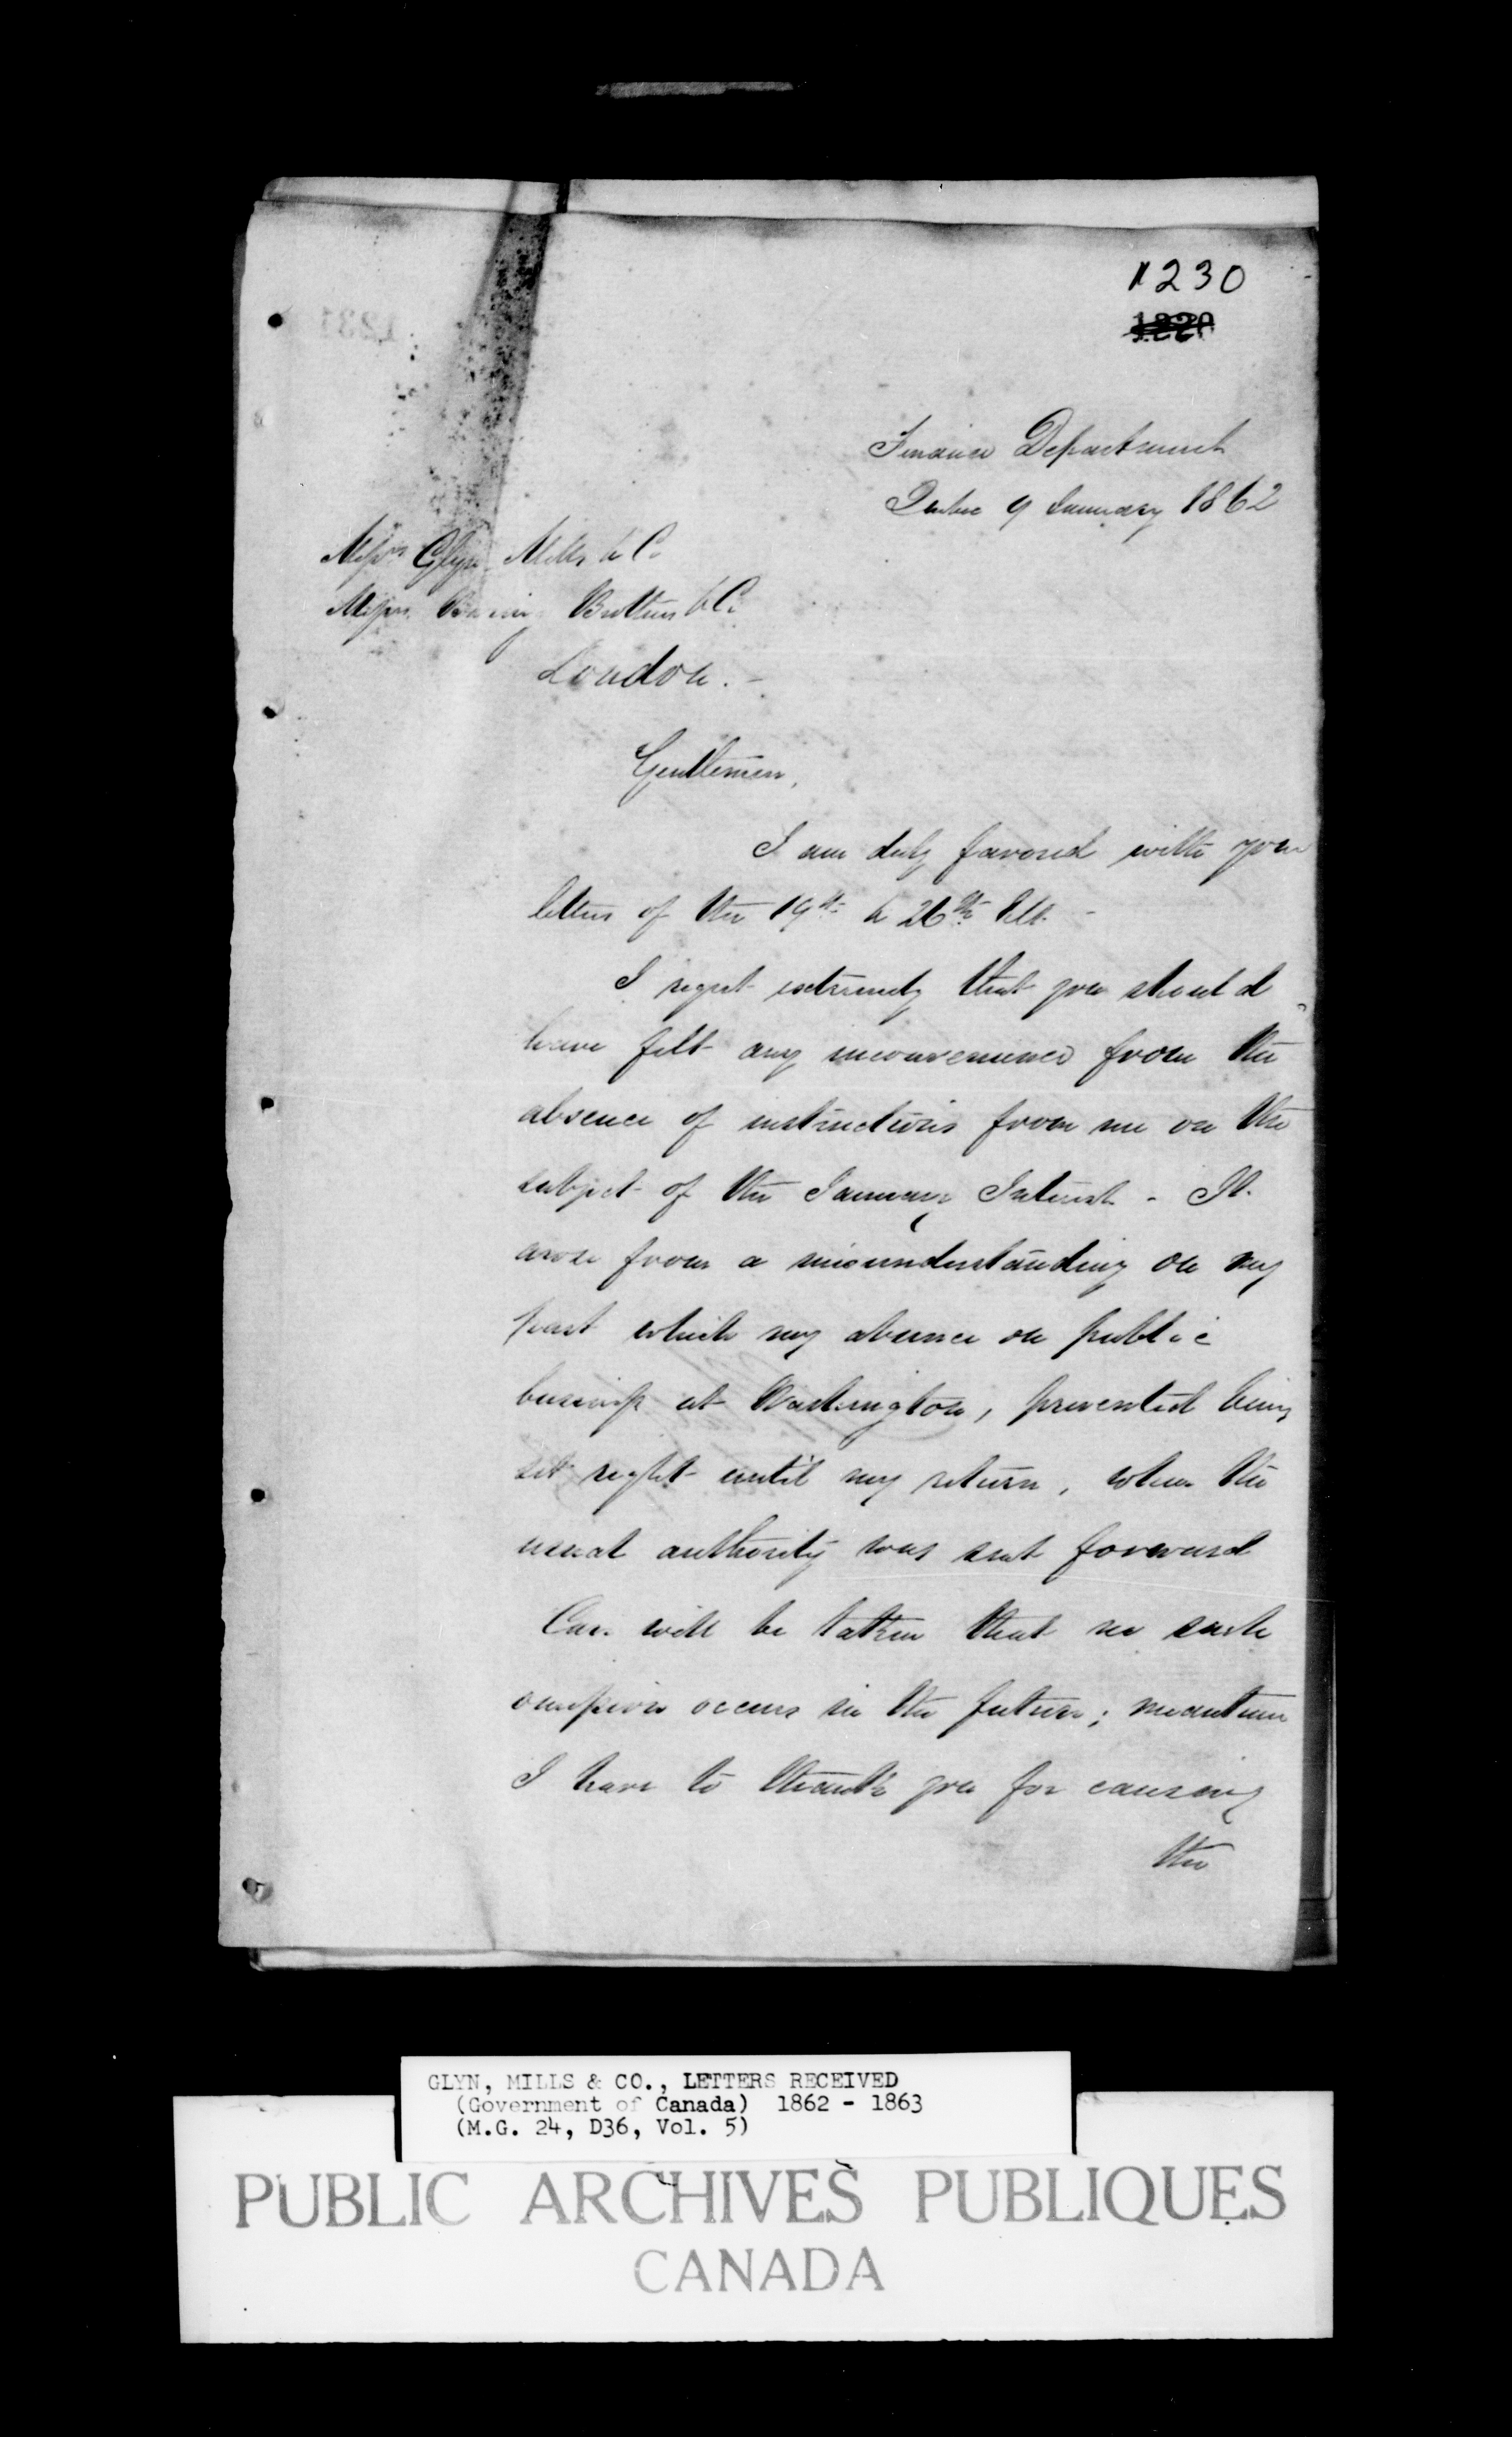 1230
1220
Finance Department
Quebec 9 January 1862
Messrs Glyn Mills & Co
Messrs Baring Brothers & Co
London. -
Gentlemen,
I am duly favored with your
letters of the 19th & 26th Ult. -
I regret extremely that you should
have felt any inconvenience from the
absence of instructions from me on the
subject of the January Interest - It
arose from a misunderstanding on my
part which my absence on public
business at Washington, prevented being
set right until my return, when the
usual authority was sent forward
Care will be taken that no such
omission occurs in the future; meantime
I have to thank you for causing
the
GLYN, MILLS & CO., LETTERS RECEIVED
(Government of Canada) 1862 - 1863
(M.G. 24, D36, Vol. 5)
PUBLIC ARCHIVES PUBLIQUES
CANADA